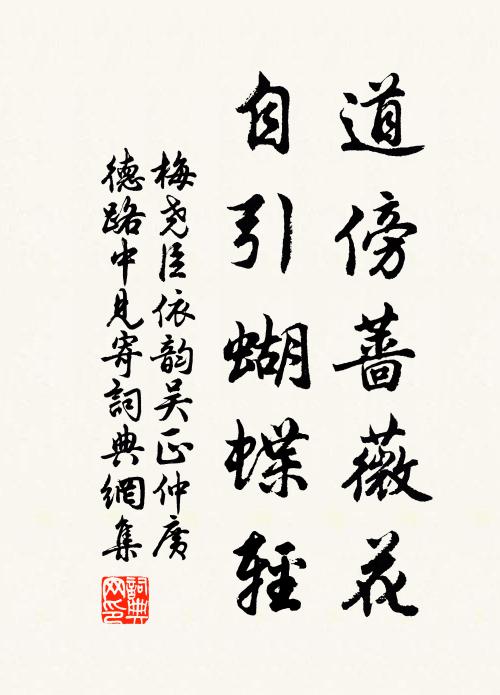 道傍蔷薇花
自引蝴蝶輕
梅尧臣依韵吴正仲廣
德路中見寄詞典網集
詞典
网印